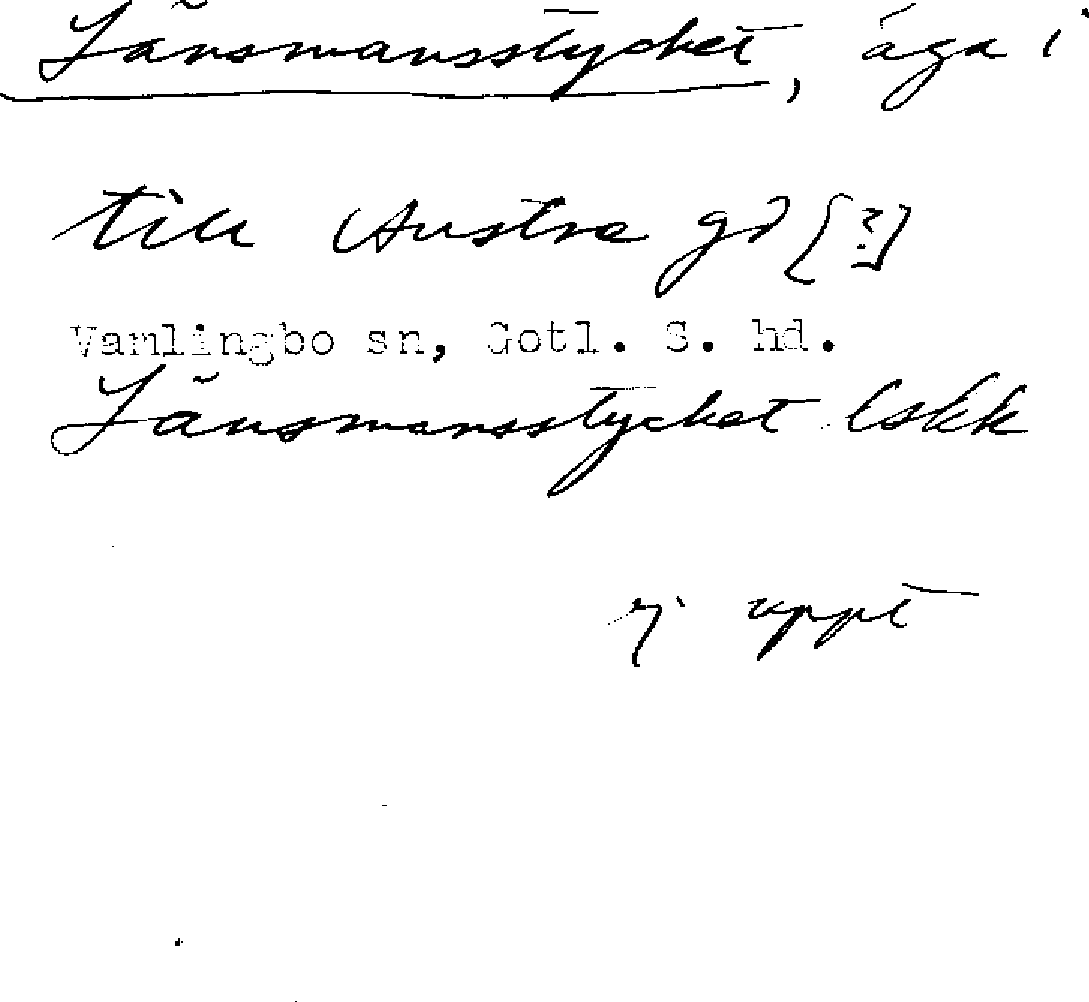 Länsmansstycket, äga i
till Austre gd [?]
Vamlingbo sn, Gotl. S. hd.
Länsmansstycket lskk
ej uppt